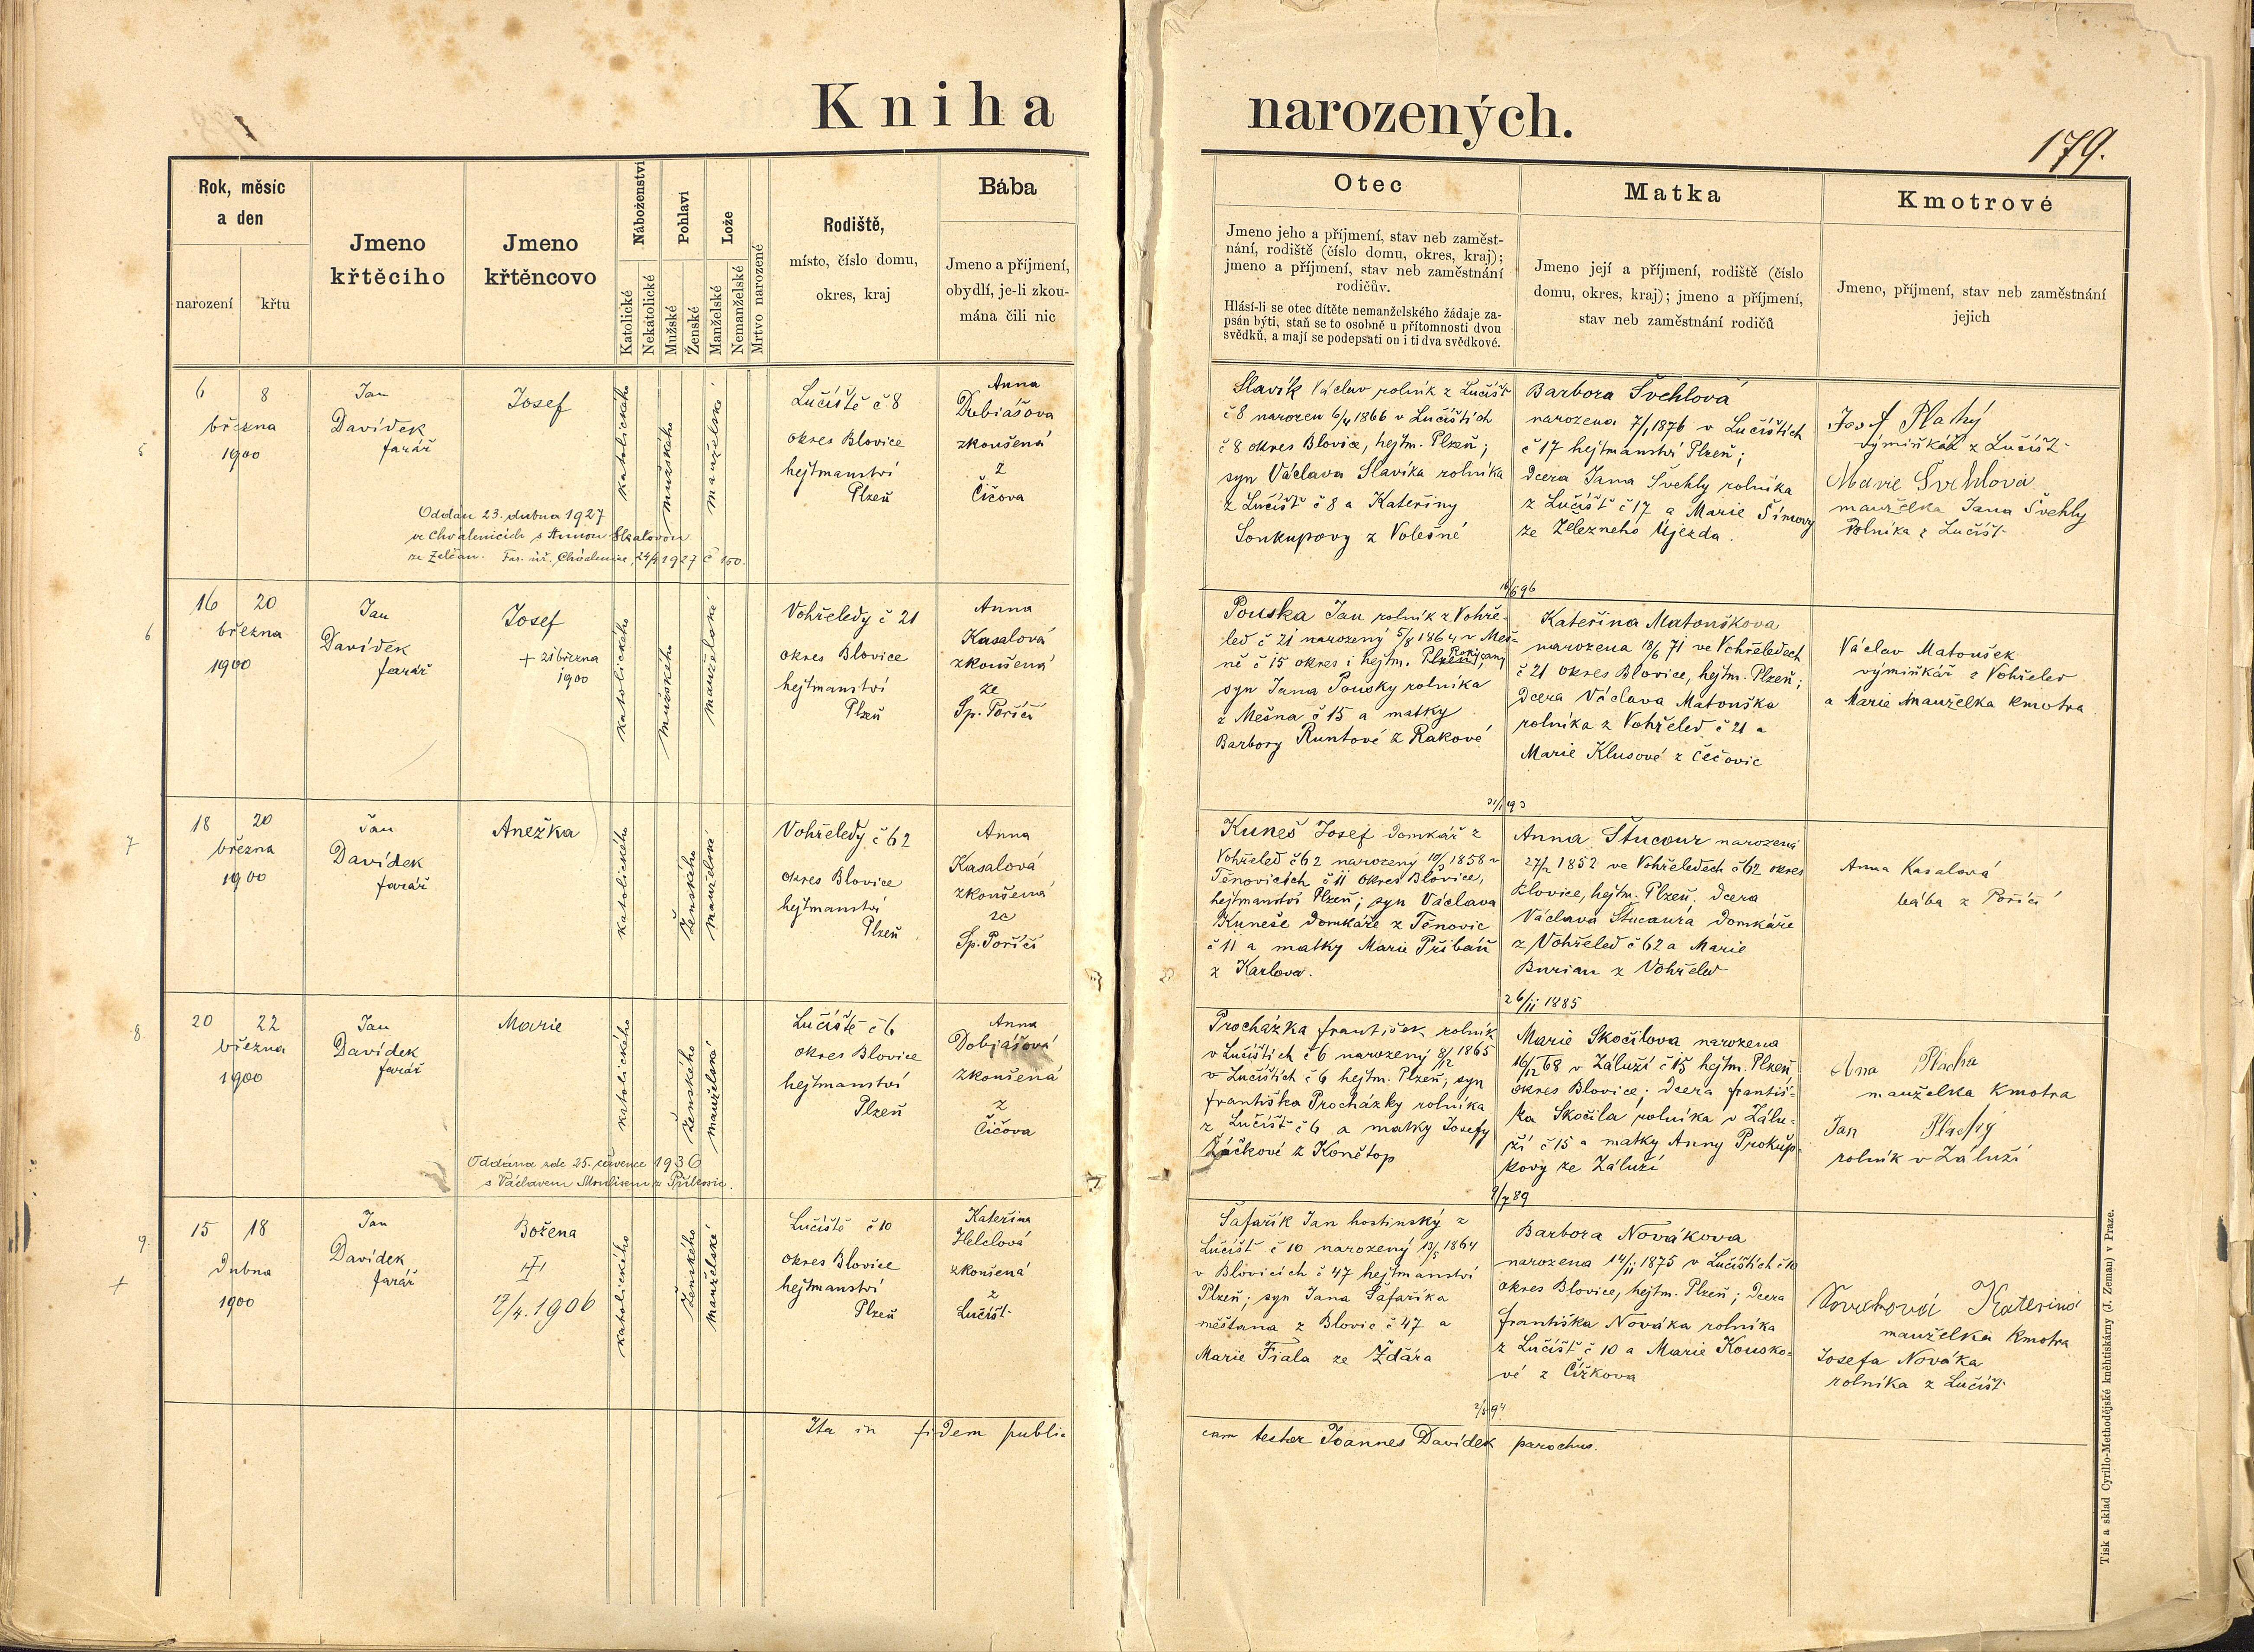 Kniha narozených.
179.
Rok, měsíc
a den
narození
křtu
Jmeno
křtěcího
Jmeno
křtěncovo
Náboženství
Katolické
Nekatolické
Pohlaví
Mužské
Ženské
Lože
Manželské
Nemanželské
Mrtvo narozené
Rodiště,
místo, číslo domu,
okres, kraj
Bába
Jmeno a příjmení,
obydlí, je-li zkou-
mána čili nic
Otec
Jmeno jeho a příjmení, stav neb zaměst-
nání, rodiště (číslo domu, okres, kraj);
jmeno a příjmení, stav neb zaměstnání
rodičův.
Hlásí-li se otec dítěte nemanželského žádaje za-
psán býti, staň se to osobně u přítomnosti dvou
svědků, a mají se podepsati on i ti dva svědkové.
Matka
Jmeno její a příjmení, rodiště (číslo
domu, okres, kraj); jmeno a příjmení,
stav neb zaměstnání rodičů
Kmotrové
Jmeno, příjmení, stav neb zaměstnání
jejich
5
6 8
března
1900
Jan
Davídek
farář
Josef
katolického
mužského
manželské
Oddán 23. dubna 1927
ve Chválenicích s Annou
ze Želčan. Far. úř. Chválenice, 24/4 1927 č 150.
Lučiště č 8
okres Blovice
hejtmanství
Plzeň
Anna
Dubiášova
zkoušená
z
Čičova
Slavík Václav rolník z Lučišť
č 8 narozen 6/4 1866 v Lučištích
č 8 okres Blovice, hejtm. Plzeň;
syn Václava Slavíka rolníka
z Lučišť č 8 a Kateřiny
Soukupovy z Volešné
Barbora Švehlová
narozena 7/1 1876 v Lučištích
č 17 hejtmanství Plzeň;
dcera Jana Švehly rolníka
z Lučišť č 17 a Marie Šimovy
ze Železného Újezda.
Josef Plahý
výminkář z Lučišť
Marie Švehlová
manželka Jana Švehly
rolníka z Lučišť
6
16 20
března
1900
Jan
Davídek
farář
Josef
+ 21 března
1900
katolického
mužského
manželské
Vohřeledy č 21
okres Blovice
hejtmanství
Plzeň
Anna
Kasalová
zkoušená
ze
Sp. Poříčí
16/6 96
Pouska Jan rolník z Vohře-
led č 21 narozený 5/8 1864 v Meš-
ně č 15 okres i hejtm. Plzeň Rokycany
syn Jana Pousky rolníka
z Mešna č 15 a matky
Barbory Runtové z Rakové
Kateřina Matoušková
narozena 18/6 71 ve Vohřeledech
č 21 okres Blovice, hejtm. Plzeň;
dcera Václava Matouška
rolníka z Vohřeled č 21 a
Marie Klusové z Čečovic
Václav Matoušek
výminkář z Vohřeled
a Marie manželka kmotra
7
18 20
března
1900
Jan
Davídek
farář
Anežka
katolického
ženského
manželské
Vohřeledy č 62
okres Blovice
hejtmanství
Plzeň
Anna
Kasalová
zkoušená
ze
Sp. Poříčí
Kuneš Josef domkář z
Vohřeled č 62 narozený 10/3 1858 v
Těnovicích č 11 okres Blovice,
hejtmanství Plzeň; syn Václava
Kuneše domkáře z Těnovic
č 11 a matky Marie Přibáň
z Karlova.
Anna Štucaur narozená
27/2 1852 ve Vohřeledech č 62 okres
Blovice, hejtm. Plzeň. dcera
Václava Štucaura domkáře
z Vohřeled č 62 a Marie
Burian z Vohřeled
Anna Kasalová
bába z Poříčí
8
20 22
března
1900
Jan
Davídek
farář
Marie
katolického
ženského
manželské
Oddána zde 25. července 1936
s Václavem
Lučiště č 6
okres Blovice
hejtmanství
Plzeň
Anna
Dobiášová
zkoušená
z
Čičova
26/11 1885
Procházka František rolník
v Lučištích č 6 narozený 8/12 1865
v Lučištích č 6 hejtm. Plzeň, syn
Františka Procházky rolníka
z Lučišť č 6 a matky Josefy
Žáčkové z Konětop
Marie Skočilova narozena
16/12 68 v Záluží č 15 hejtm. Plzeň
okres Blovice; dcera Františ-
ka Skočila rolníka v Zálu-
ží č 15 a matky Anny Prokůp-
kovy ze Záluží
Ana Plachá
manželka kmotra
Jan Plachý
rolník v Záluží
9.
+
15 18
dubna
1900
Jan
Davídek
farář
Božena
17/4. 1906
katolického
ženského
manželské
Lučiště č 10
okres Blovice
hejtmanství
Plzeň
Kateřina
Helclová
zkoušená
z
Lučišť
9/7 89
Šafařík Jan hostinský z
Lučišť č 10 narozený 13/5 1864
v Blovicích č 47 hejtmanství
Plzeň; syn Jana Šafaříka
měštana z Blovic č 47 a
Marie Fiala ze Ždára
Barbora Nováková
narozena 14/11 1875 v Lučištích č 10
okres Blovice, hejtm. Plzeň; dcera
Františka Nováka rolníka
z Lučišť č 10 a Marie Kousko-
vé z Čížkova
Nováková Kateřina
manželka kmotra
Josefa Nováka
rolníka z Lučišť
2/5 94
Ita in fidem publi-
cam testor Joannes Davídek parochus.
Tisk a sklad Cyrillo-Methodějské knihtiskárny (J. Zeman) v Praze.